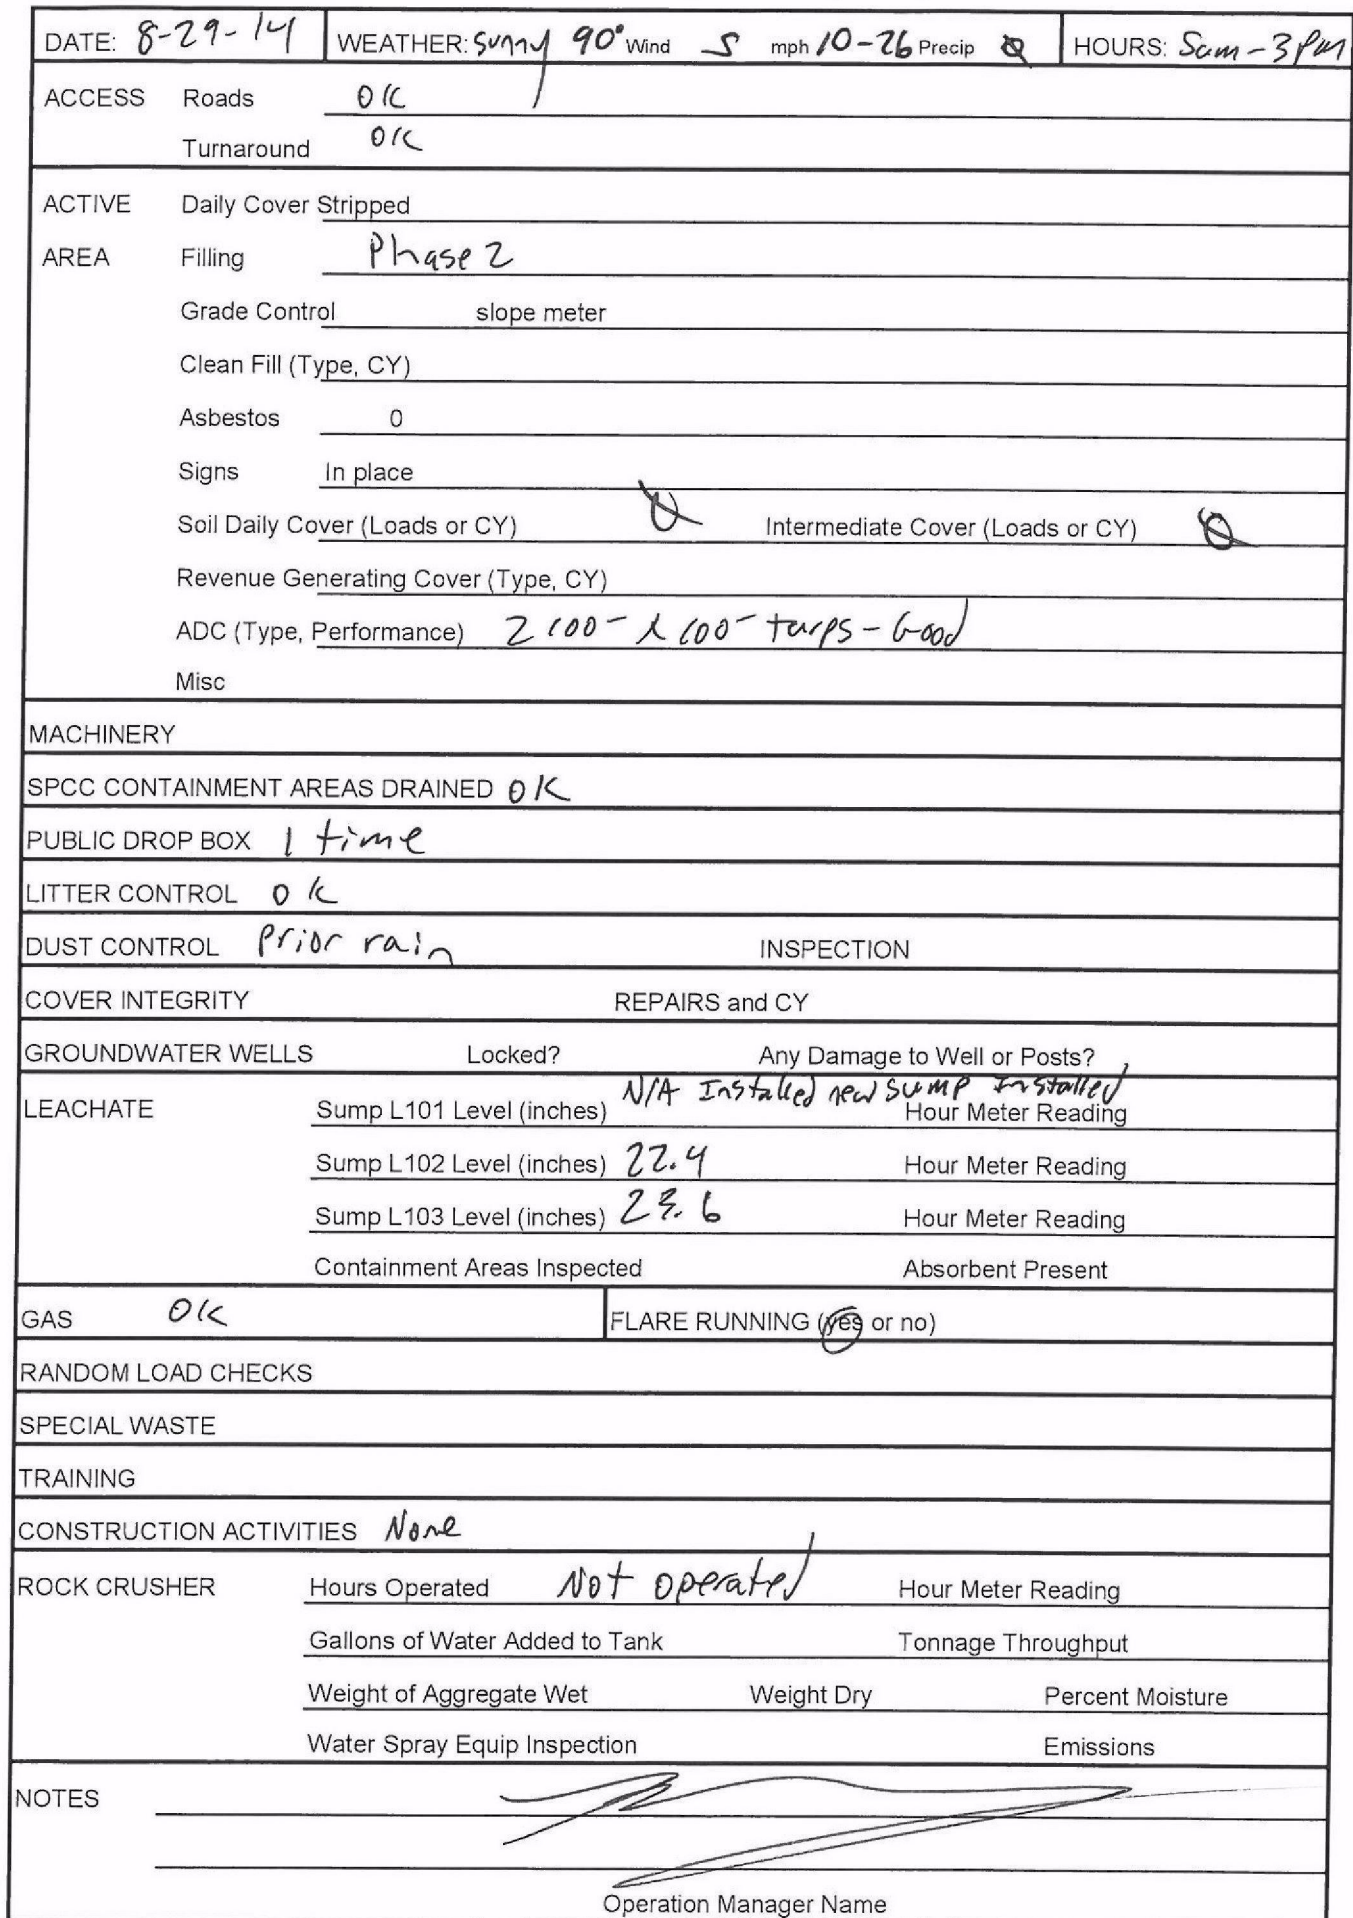 DATE: 8-29-14 WEATHER: Sunny 90° Wind S mph 10-26 Precip Ø HOURS: 5am-3pm
ACCESS Roads OK
Turnaround OK
ACTIVE Daily Cover Stripped
AREA Filling Phase 2
Grade Control slope meter
Clean Fill (Type, CY)
Asbestos 0
Signs In place
Soil Daily Cover (Loads or CY) Ø Intermediate Cover (Loads or CY) Ø
Revenue Generating Cover (Type, CY)
ADC (Type, Performance) tarps - Good
Misc
MACHINERY
SPCC CONTAINMENT AREAS DRAINED OK
PUBLIC DROP BOX 1 time
LITTER CONTROL OK
DUST CONTROL Prior rain INSPECTION
COVER INTEGRITY REPAIRS and CY
GROUNDWATER WELLS Locked? Any Damage to Well or Posts?
LEACHATE Sump L101 Level (inches) N/A Installed new sump Installed Hour Meter Reading
Sump L102 Level (inches) 22.4 Hour Meter Reading
Sump L103 Level (inches) 23.6 Hour Meter Reading
Containment Areas Inspected Absorbent Present
GAS OK FLARE RUNNING (yes or no)
RANDOM LOAD CHECKS
SPECIAL WASTE
TRAINING
CONSTRUCTION ACTIVITIES None
ROCK CRUSHER Hours Operated Not operated Hour Meter Reading
Gallons of Water Added to Tank Tonnage Throughput
Weight of Aggregate Wet Weight Dry Percent Moisture
Water Spray Equip Inspection Emissions
NOTES
Operation Manager Name